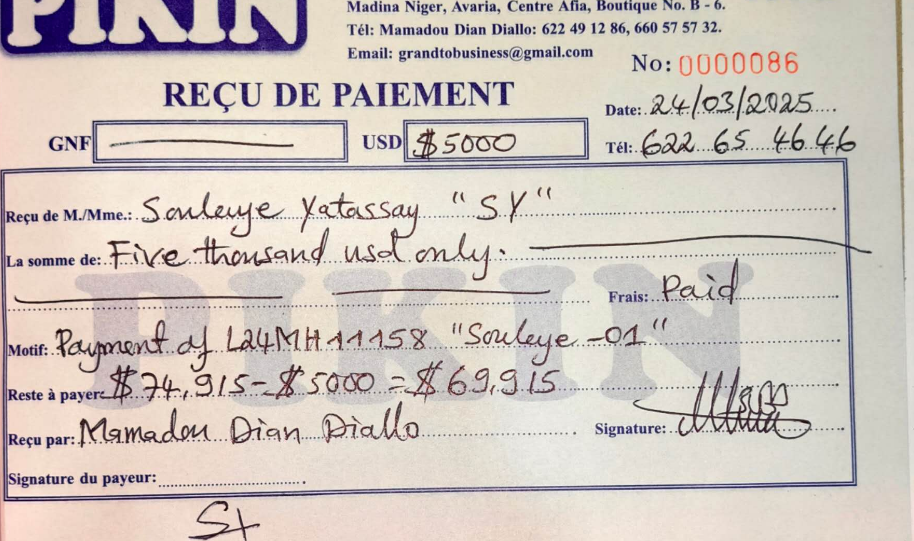 PIKIN
Madina Niger, Avaria, Centre Afia, Boutique No. B - 6.
Tél: Mamadou Dian Diallo: 622 49 12 86, 660 57 57 32.
Email: grandtobusiness@gmail.com
No: 0000086
REÇU DE PAIEMENT
Date: 24/03/2025
GNF USD $5000
Tél: 622 65 46 46
Reçu de M./Mme.: Souleye Yatassay "SY"
La somme de: Five thousand usd only.
Frais: Paid
PIKIN
Motif: Payment of L24MH11158 "Souleye -01"
Reste à payer: $74,915 - $5000 = $69,915
Reçu par: Mamadou Dian Diallo Signature:
Signature du payeur: